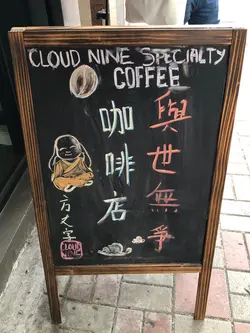 CLOUD NINE SPECIALTY
COFFEE
與世無爭
咖啡店
方丈字
CLOUD
NINE